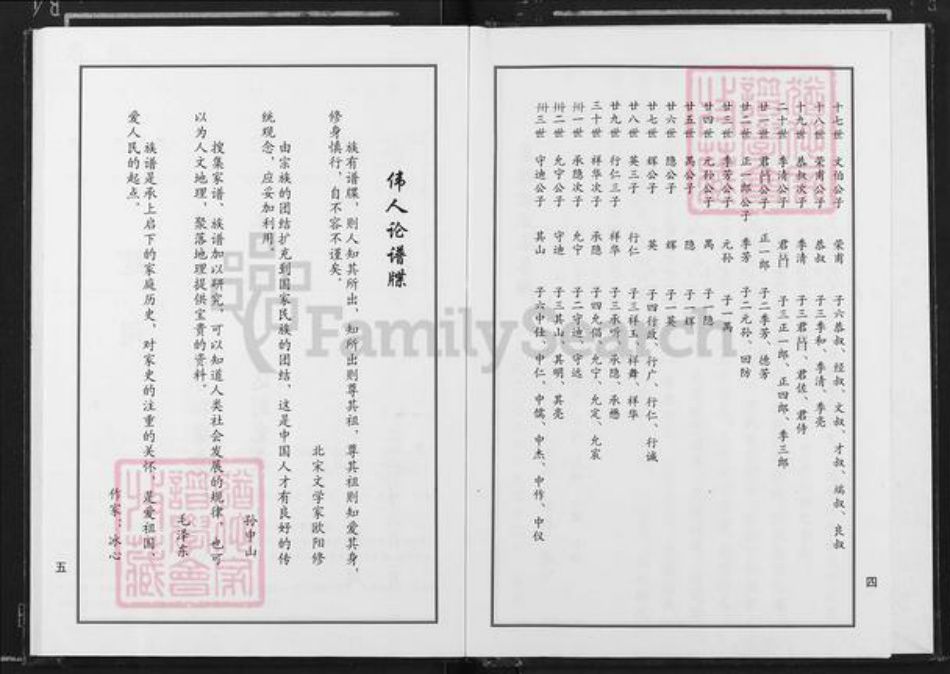 十七世 文伯公子 荣甫 子六恭叔、经叔、文叔、才叔、端叔、良叔
十八世 荣甫公子 恭叔 子三季和、季清、季亮
十九世 恭叔次子 季清 子三君启、君佐、君侍
二十世 季清公子 子三正一郎、正四郎、季三郎
廿一世 正一郎 子二季芳、德芳
廿二世 正一郎公子 季芳 子二元孙、回防
廿三世 季芳公子 元孙 子一禹
廿四世 元孙公子 禹 子一隐
廿五世 禹公子 隐 子一辉
廿六世 隐公子 辉 子一英
廿七世 辉公子 英 子四行政、行广、行仁、行诚
廿八世 英三子 行仁 子三祥玉、祥舞、祥华
廿九世 行仁三子 祥华 子三承听、承隐、承懋
三十世 祥华次子 承隐 子四允倡、允宁、允定、允宸
卅一世 承隐次子 允宁 子二守迪、守远
卅二世 允宁公子 守迪 子三其山、其明、其亮
卅三世 守迪公子 其山 子六中仕、中仁、中儒、中杰、中作、中仪
四
伟人论谱牒
族有谱牒，则人知其所出，知所出则尊其祖，尊其祖则知爱其身，
修身慎行，自不容不谨矣。
北宋文学家欧阳修
由宗族的团结扩充到国家民族的团结，这是中国人才有良好的传
统观念，应妥加利用。
孙中山
搜集家谱、族谱加以研究，可以知道人类社会发展的规律，也可
以为人文地理，聚落地理提供宝贵的资料。
毛泽东
族谱是承上启下的家庭历史，对家史的注重的关怀，是爱祖国，
爱人民的起点。
作家：冰心
五
FamilySearch